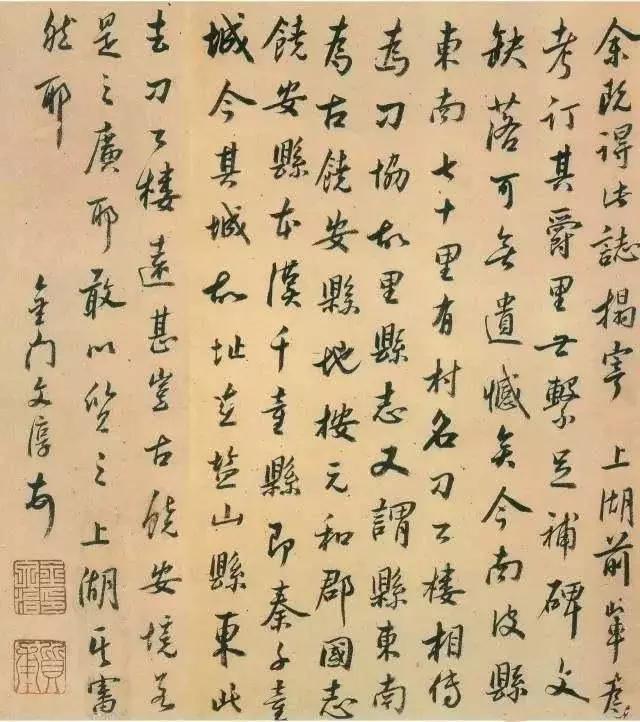 余既得此誌榻寄上湖前輩
考订其爵里世繫足補碑文
缺落可無遺憾矣今南皮縣
東南七十里有村名刀公樓相傳
為刀協故里縣志又謂縣東南
為古饒安縣地按元和郡國志
饒安縣本漢千童縣即秦千童
城今其城故址在盐山縣東此
去刀公樓遠甚豈古饒安境若
是之廣耶敢以質之上湖其審
然耶
金门文淳
質甫